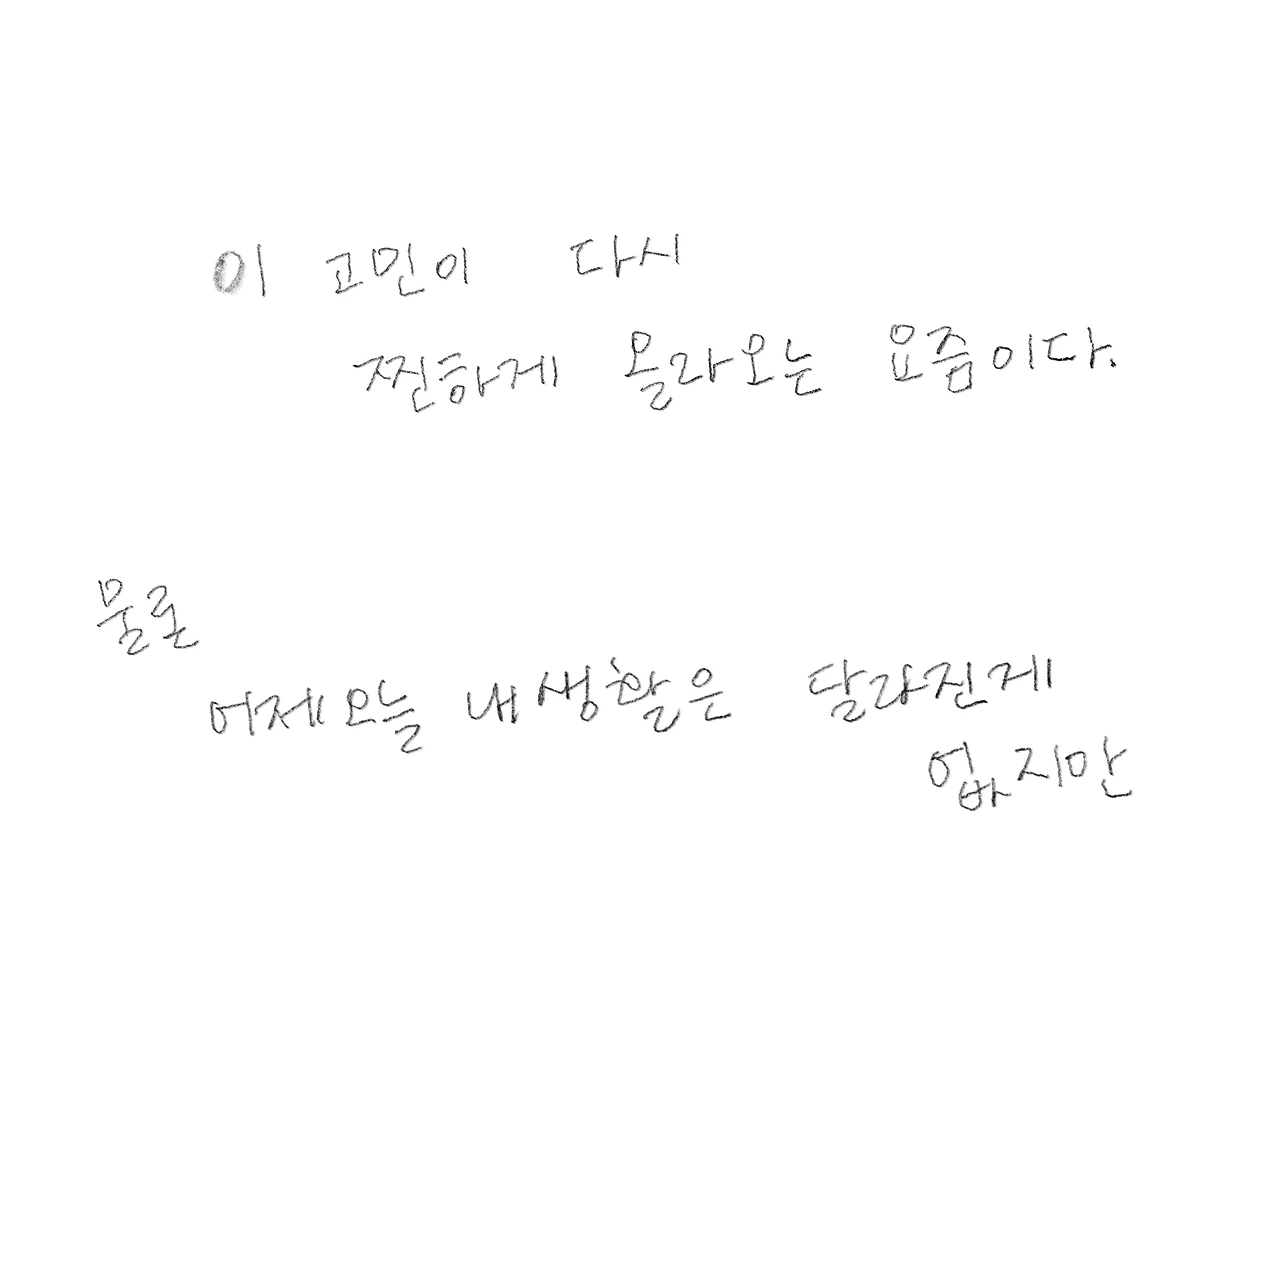 이 고민이 다시
찐하게 올라오는 요즘이다.
물론
어제오늘 내 생활은 달라진게
없지만